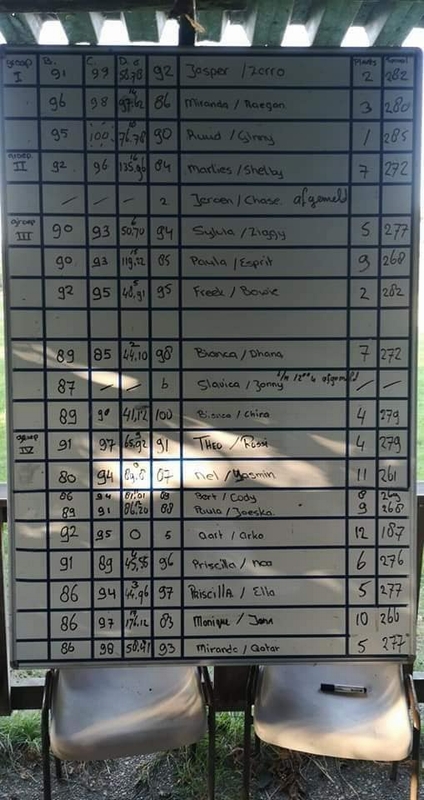 groep B. C. D. Plaats Totaal
I 91 99 92 Jasper / Zorro 2 282
96 98 86 Miranda / Raegan 3 280
95 100 90 Ruud / Ginny 1 285
II 92 96 84 Marlies / Shelby 7 272
/ / / 2 Jeroen / Chase. afgemeld
groep III 90 93 94 Sylvia / Ziggy 5 277
90 93 119,22 85 Paula / Esprit 9 268
92 95 40,91 95 Freek / Bowie 2 282
89 85 44,10 98 Bianca / Dhana 7 272
87 / / b Slavica / Zonny afgemeld / /
89 90 41,12 100 Bianca / Chira 4 279
groep IV 91 97 65,92 91 THEO / Rossi 4 279
80 94 87 Nel / Yasmin 11 261
86 94 81,01 89 Bert / Cody 8 269
89 91 86,20 88 Paula / Joeska 9 268
92 95 0 5 Aart / Arko 12 187
91 89 45,56 96 Priscilla / Noa 6 276
86 94 44,96 97 PRiscillA / Ella 5 277
86 97 176,12 83 Monique / 10 266
86 98 58,41 93 Mirando / Qatar 5 277